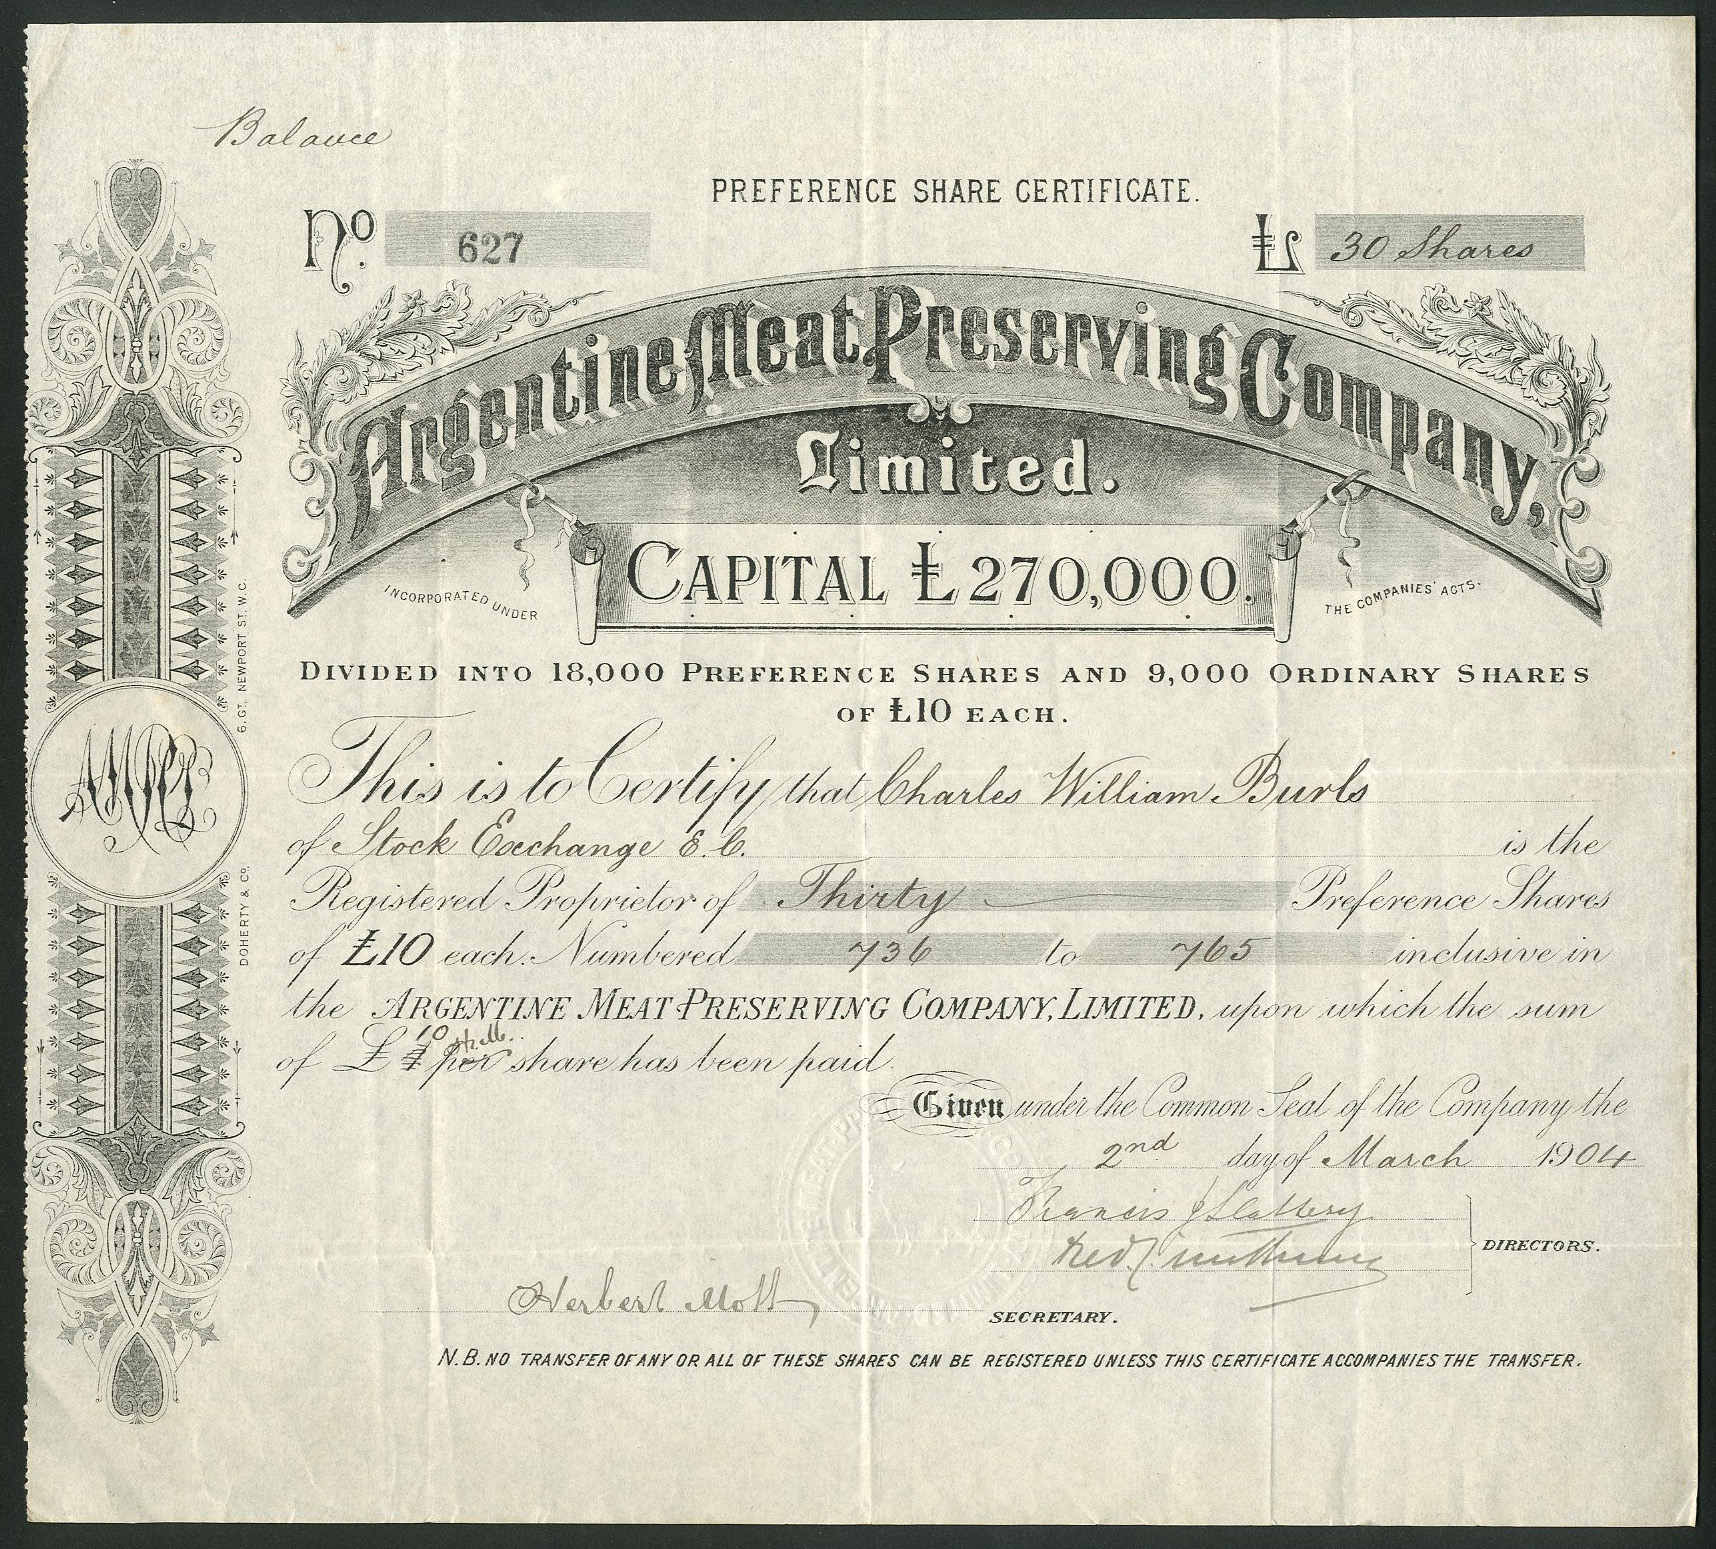 Balance
PREFERENCE SHARE CERTIFICATE.
No. 627
£ 30 Shares
Argentine Meat Preserving Company,
Limited.
CAPITAL £270,000.
INCORPORATED UNDER THE COMPANIES' ACTS.
DIVIDED INTO 18,000 PREFERENCE SHARES AND 9,000 ORDINARY SHARES
OF £10 EACH.
This is to Certify that Charles William Burls
of Stock Exchange E.C. is the
Registered Proprietor of Thirty Preference Shares
of £10 each. Numbered 736 to 765 inclusive in
the ARGENTINE MEAT PRESERVING COMPANY, LIMITED, upon which the sum
10
of £ per share has been paid.
Given under the Common Seal of the Company the
2nd day of March 1904
Francis J Slattery
DIRECTORS.
Herbert Mott
SECRETARY.
N.B. NO TRANSFER OF ANY OR ALL OF THESE SHARES CAN BE REGISTERED UNLESS THIS CERTIFICATE ACCOMPANIES THE TRANSFER.
DOHERTY & CO. 6, GT. NEWPORT ST. W.C.